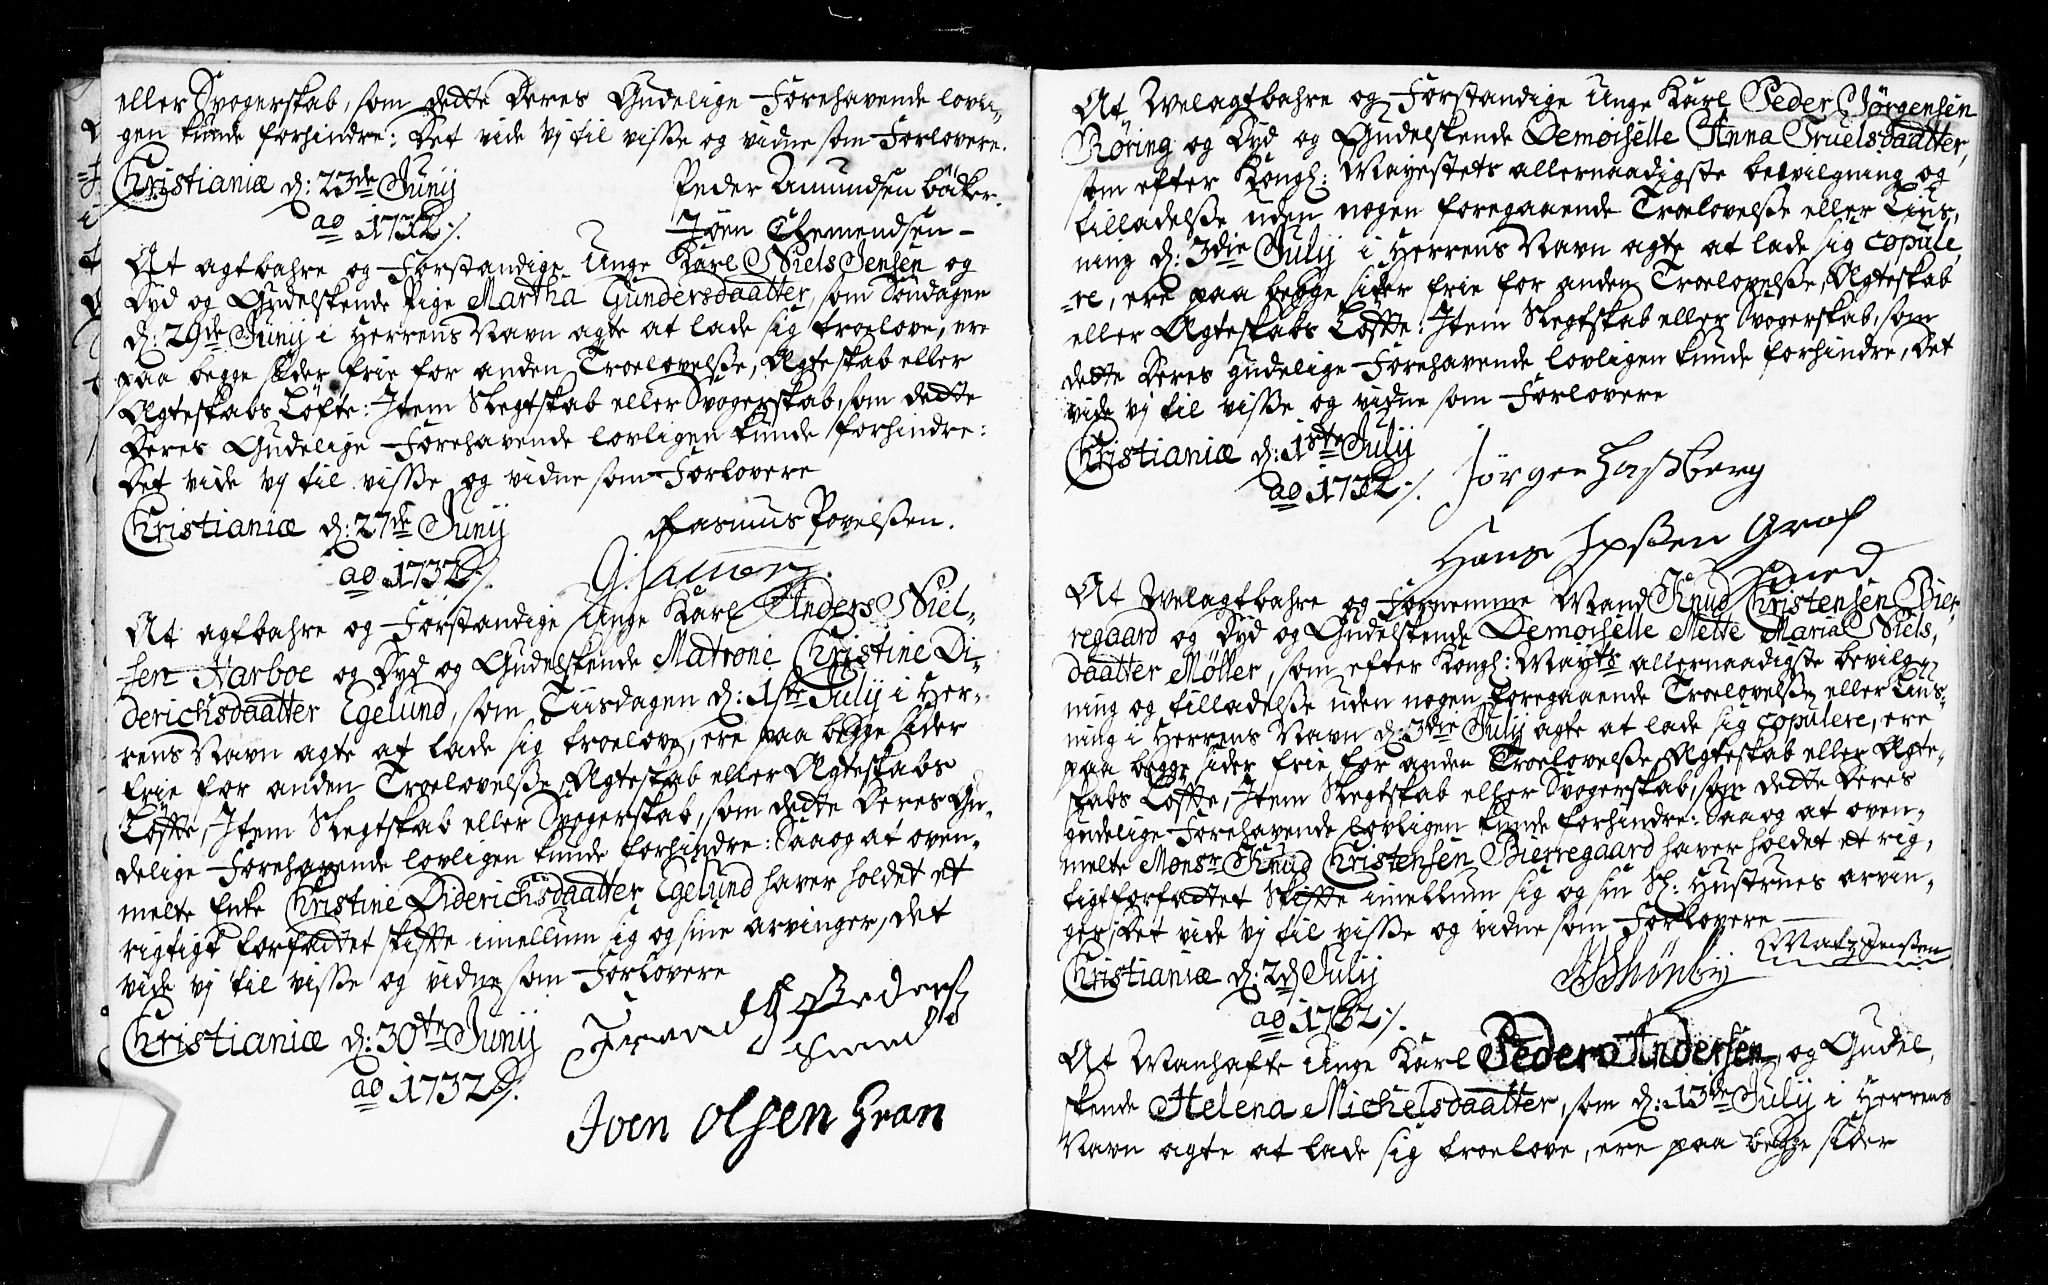 eller Svogerskab, som dette deres Gudelige Forehavende lovli-
gen kunde forhindre: Det vide vj til visse og vidne som Forlovere.
Christianiæ d: 23de Junij
ao 1732 ·/.
Peder Amundsen bäcker.
Jöen Clemendsen –
At agtbahre og Forstandige Unge Karl Niels Jensen og
Dyd og Gudelskende Pige Martha Gundersdaatter, som Söndagen
d: 29de Junij i Herrens Navn agte at lade sig troelove, ere
paa begge sider frie for anden Troelovelsse, Ægteskab eller
Ægteskabs Löfte: Item Slegtskab eller Svogerskab, som dette
Deres Gudelige Forehavende lovligen kunde forhindre:
Det vide vj til visse og vidne som Forlovere
Christianiæ d: 27de Junij
ao 1732 ·/.
Rasmus Povelssen.
At agtbahre og Forstandige Unge Karl Anders Niel-
sen Harboe og Dyd og Gudelskende Matrone Christine Di-
derichsdaatter Egelund, som Tiisdagen d: 1ste Julij i Her-
rens Navn agte at lade sig troelove, ere paa begge sider
frie for anden Troelovelsse, Ægteskab eller Ægteskabs
Löffte, Item Slegtskab eller Svogerskab, som dette Deres Gu-
delige Forehavende lovligen kunde forhindre: Saa og at oven-
melte Enke Christine Diderichsdaatter Egelund haver holdet et
rigtigt forfattet skiffte imellum sig og sine arvinger, det
vide vj til visse og vidne som Forlovere
Christianiæ d: 30te Junij
ao 1732 ·/.
Iven Olsen Gran
At Welagtbahre og Forstandige Unge Karl Peder Jörgensen
Röring og Dyd og Gudelskende Demoiselle Anna Truelsdaatter,
som efter Kongl: Mayestets allernaadigste bevilgning og
tilladelsse uden nogen foregaaende Troelovelsse eller Lius-
ning d: 3die Julij i Herrens Navn agte at lade sig copule-
-re, ere paa begge sider frie for anden Troelovelsse, Ægteskab
eller Ægteskabs Löffte: Item Slegtskab eller Svogerskab, som
dette Deres gudelige Forehavende lovligen kunde forhindre, Det
vide vj til visse og vidne som Forlovere
Christianiæ d: 1ste Julij
ao 1732 ·/.
Jörgen Hassberg
Hans Ipssen Grof
Smed
At Welagtbahre og Fornemme Mand Knud Christensen Bier-
regaard og Dyd og Gudelskende Demoiselle Mette Maria Niels-
daatter Möller, som efter Kongl: Mayts allernaadigste bevilg-
ning og tilladelsse uden nogen foregaaende Troelovelsse eller Lius-
ning i Herrens Navn d: 3die Julij agte at lade sig copulere, ere
paa begge sider frie for anden Troelovelsse, Ægteskab eller Ægte-
skabs Löffte, Item Slegtskab eller Svogerskab, som dette Deres
gudelige Forehavende lovligen kunde forhindre: Saa og at oven-
melte Monsr Knud Christensen Bierregaard haver holdet et rig-
tigt forfattet Skiffte imellum sig og sin Sl: Hustrues arvin-
ger, Det vide vj til visse og vidne som Forlovere
Christianiæ d: 2d Julij
ao 1732 ·/.
Schönbÿ
Matz Jenssen
At Manhafte Unge Karl Peder Andersen og Gudel-
skende Helena Michelsdaatter, som d: 13de Julij i Herrens
Navn agte at lade sig troelove, ere paa begge sider